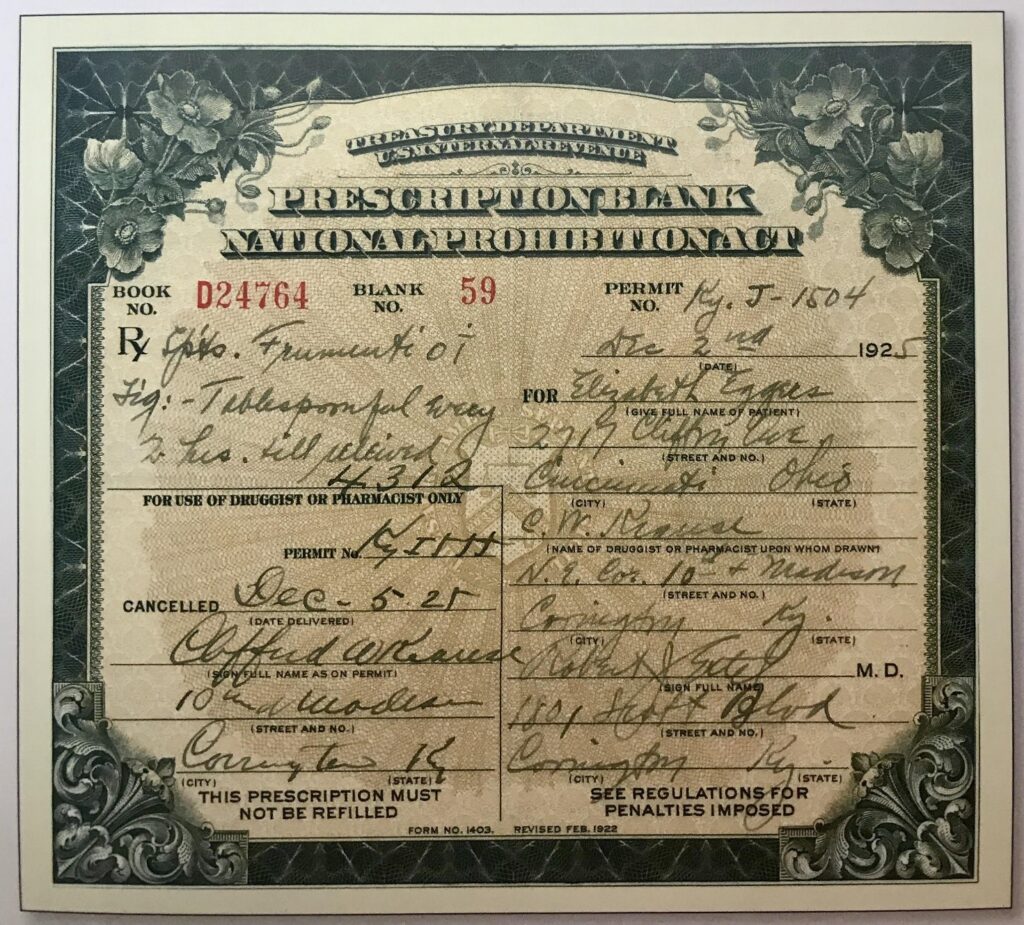 TREASURY DEPARTMENT
U.S. INTERNAL REVENUE
PRESCRIPTION BLANK
NATIONAL PROHIBITION ACT
BOOK NO. D24764 BLANK NO. 59 PERMIT NO. Ky. J-1504
Rx Spts. Frumenti Oi
Sig:- Tablespoonful every
2 hrs. till relieved
4312
Dec 2nd 1925
(DATE)
FOR Elizabeth Eggers
(GIVE FULL NAME OF PATIENT)
2717 Clifton Ave
(STREET AND NO.)
Cincinnati Ohio
(CITY) (STATE)
C. W. Krause
(NAME OF DRUGGIST OR PHARMACIST UPON WHOM DRAWN)
N. E. Cor. 10th & Madison
(STREET AND NO.)
Covington Ky.
(CITY) (STATE)
Robert J M.D.
(SIGN FULL NAME)
1801 Scott Blvd
(STREET AND NO.)
Covington Ky.
(CITY) (STATE)
SEE REGULATIONS FOR
PENALTIES IMPOSED
FOR USE OF DRUGGIST OR PHARMACIST ONLY
PERMIT No. Ky
CANCELLED Dec - 5 - 25
(DATE DELIVERED)
Clifford W Krause
(SIGN FULL NAME AS ON PERMIT)
10th and Madison
(STREET AND NO.)
Covington Ky
(CITY) (STATE)
THIS PRESCRIPTION MUST
NOT BE REFILLED
FORM NO. 1403. REVISED FEB. 1922